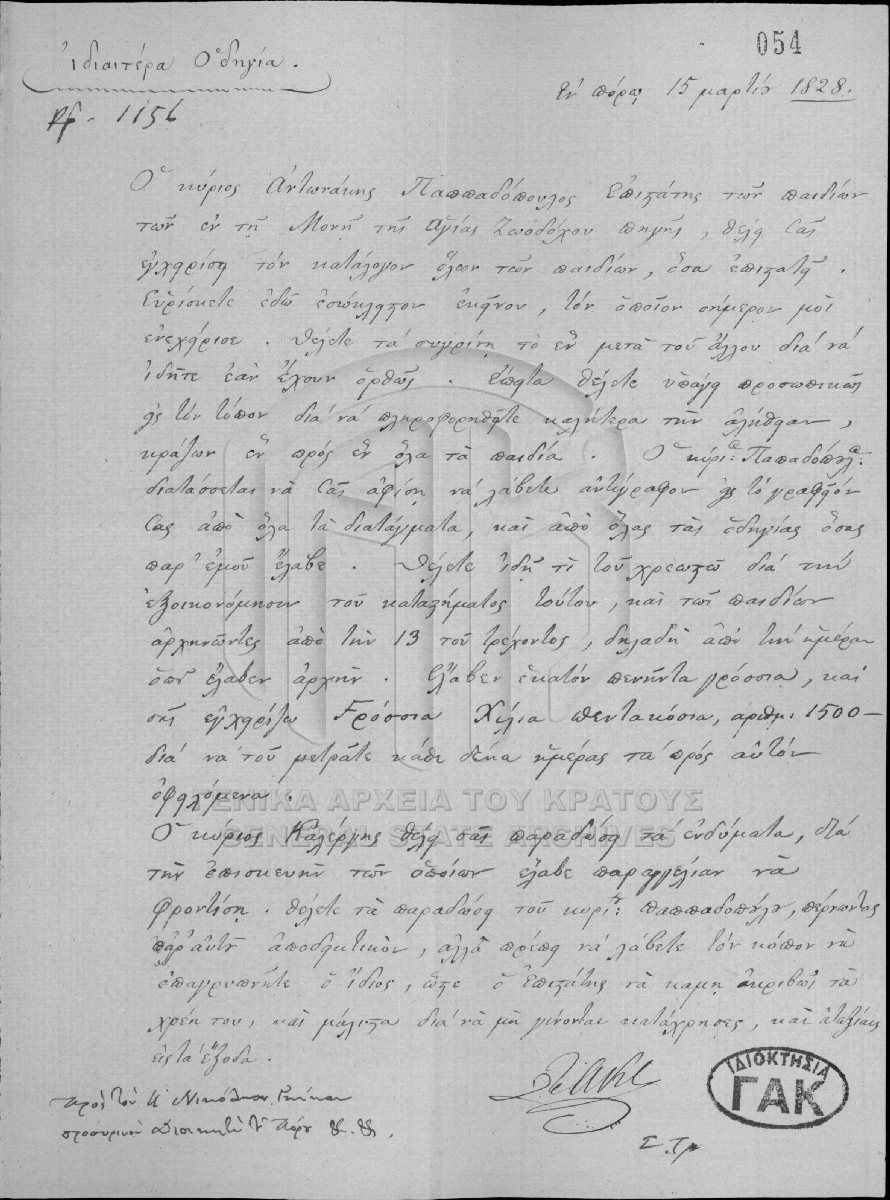 054
ἰδιαιτέρα Ὁδηγία.
Ἐν πόρῳ 15 μαρτίου 1828.
1156
Ὁ κύριος Ἀντωνάκης Παππαδόπουλος Ἐπιστάτης τῶν παιδίων
τῶν ἐν τῇ Μονῇ τῆς Ἁγίας Ζωοδόχου πηγῆς, θέλει σᾶς
ἐγχειρίσῃ τόν κατάλογον ὅλων τῶν παιδίων, ὅσα ἐπιστατεῖ.
Εὑρίσκετε ἐδῶ ἐσώκλειστον ἐκεῖνον, τόν ὁποῖον σήμερον μοί
ἐνεχείρισε. Θέλετε τά συγκρίνῃ τό ἕν μετά τοῦ ἄλλου διά νά
ἰδῆτε ἐάν ἔχουν ὀρθῶς. Ἔπειτα θέλετε ὑπάγει προσωπικῶς
εἰς τόν τόπον διά νά πληροφορηθῆτε καλήτερα τήν ἀλήθειαν,
κράζων ἕν πρός ἕν ὅλα τά παιδία. Ὁ κύριος Παπαδόπουλος
διατάσσεται νά σᾶς ἀφίσῃ νά λάβετε ἀντίγραφον εἰς τό γραφεῖόν
σας ἀπό ὅλα τά διατάγματα, καί ἀπό ὅλας τάς ὁδηγίας ὅσας
παρ' ἐμοῦ ἔλαβε. Θέλετε ἰδῆ τί τοῦ χρεωστῶ διά τήν
ἐξοικονόμησιν τοῦ καταστήματος τούτου, καί τῶν παιδίων
ἀρχηνῶντες ἀπό τήν 13 τοῦ τρέχοντος, δηλαδή ἀπό τήν ἡμέραν
ὅπου ἔλαβεν ἀρχήν. Ἔλαβεν ἑκατόν πενῆντα γρόσσια, καί
σᾶς ἐγχειρίζω Γρόσσια Χίλια πεντακόσια, ἀριθ: 1500-
διά νά τοῦ μετρᾶτε κάθε δέκα ἡμέρας τά πρός αὐτόν
ὀφειλόμενα.
Ὁ κύριος Καλέργης θέλει σᾶς παραδώσῃ τά ἐνδύματα, διά
τήν ἐπισκευήν τῶν ὁποίων ἔλαβε παραγγελίαν νά
φροντίσῃ. Θέλετε τά παραδώσῃ τοῦ κυρίου Παππαδοπούλου, πέρνωντας
παρ' αὐτοῦ ἀποδεικτικόν, ἀλλά πρέπει νά λάβετε τόν κόπον νά
ἐπαγρυπνῆτε ὁ ἴδιος, ὥστε ὁ Ἐπιστάτης νά κάμῃ ἀκριβῶς τά
χρέη του, καί μάλιστα διά νά μή γίνονται κατάχρησες, καί ἀταξίαις
εἰς τά ἔξοδα.
Πρός τόν Κ Νικόλαον
προσωρινόν Διοικητήν τοῦ Πόρου
Σ. Τρ
ΓΕΝΙΚΑ ΑΡΧΕΙΑ ΤΟΥ ΚΡΑΤΟΥΣ
GENERAL STATE ARCHIVES
ΙΔΙΟΚΤΗΣΙΑ
ΓΑΚ